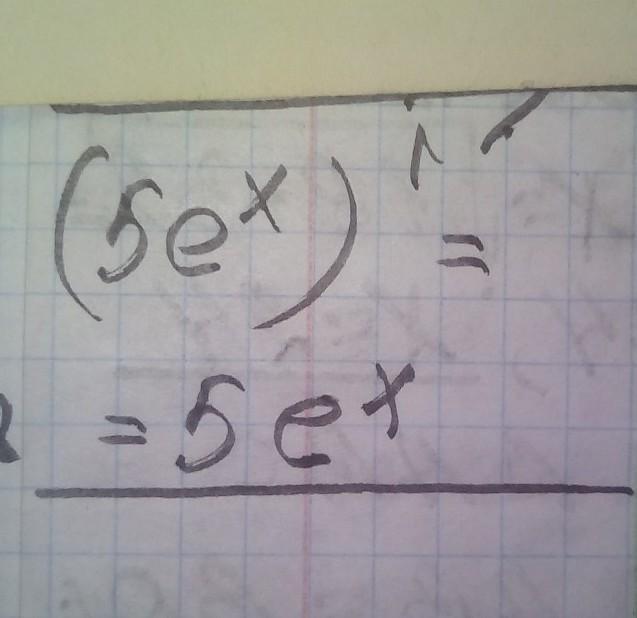 (5e^x)' =
= 5e^x